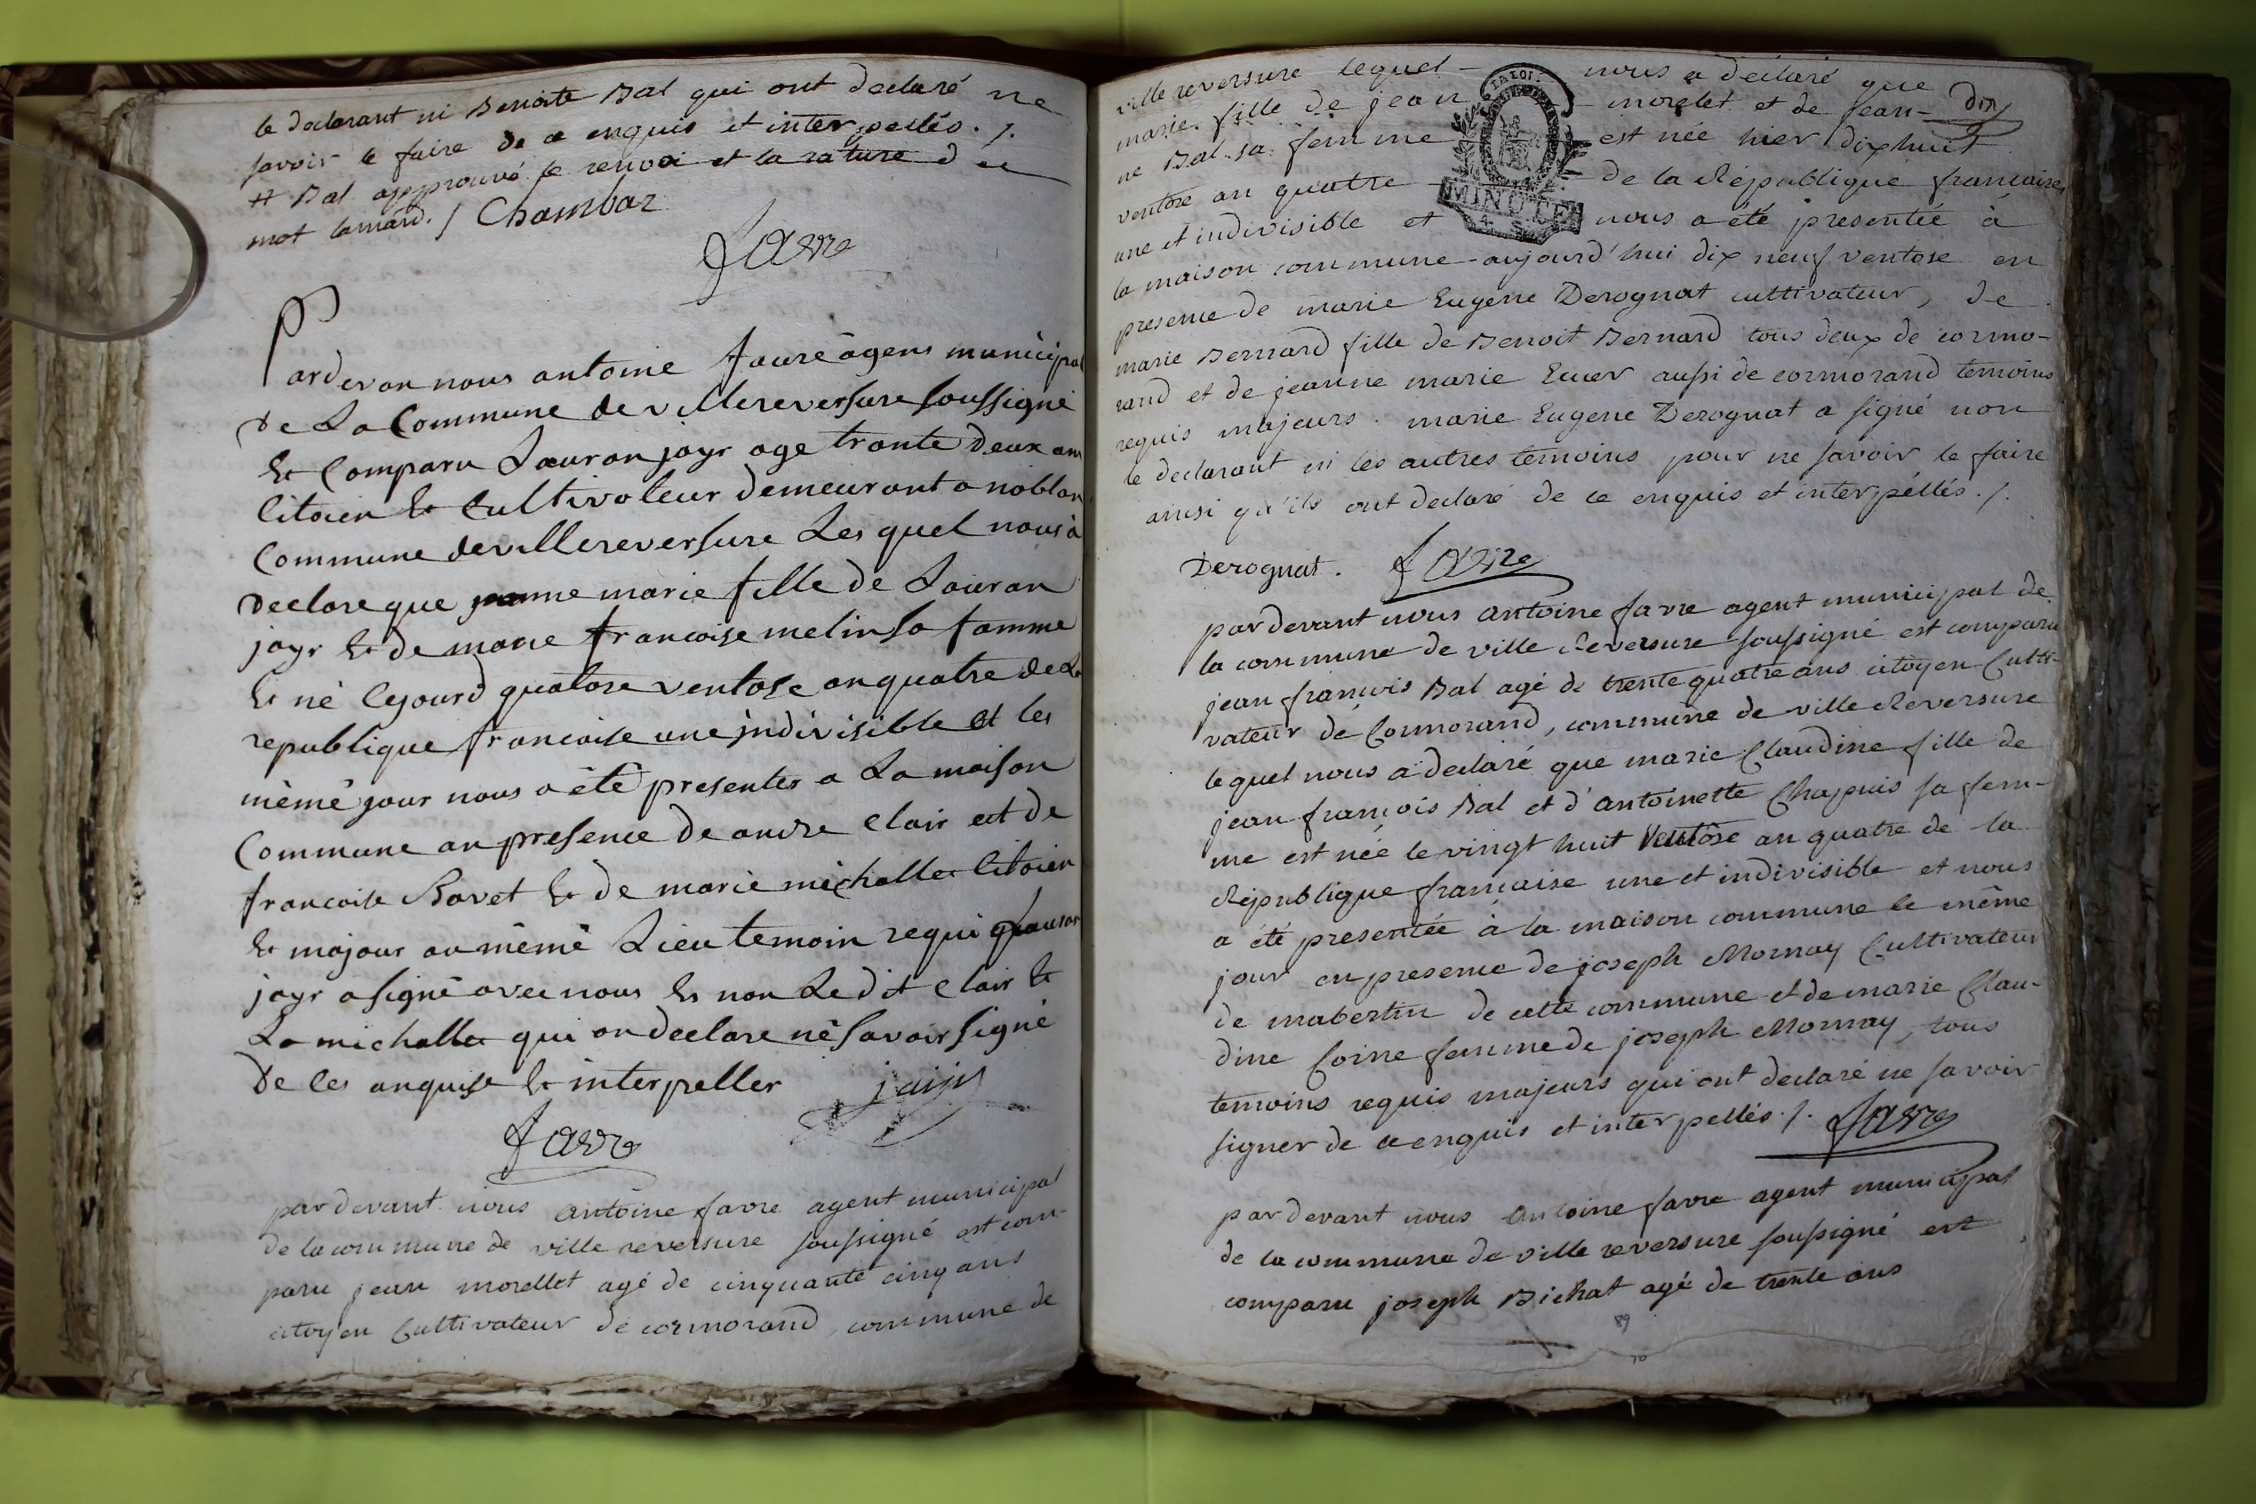 le declarant ni Benoite Bal qui ont declaré ne
savoir le faire de ce enquis et interpellés ./.
# Bal approuvé le renvoi et la rature du
mot lamard. / Chambaz
favre
Pardevan nous antoine faure agens municipal
de La Commune de villereversure soussigné
Et Comparu Lauran jayr age trante deux an
Citoien Et Cultivateur demeurant a noblan
Commune devillereversure Les quel nous a
declare que janne marie fille de Lauran
jayr Et de marie francoise melin sa famme
Et né Cejourd quatorse ventose anquatre de La
republique francaise une jndivisible et les
mêmê jour nous a été presenter a La maison
Commune an presence de andre Clair et de
francoise Bovet Et de marie michallet Citoien
Et majour au mêmê Lieu temoin requi Lauran
jayr a signé avec nous Et non Ledit Clair Et
La michallet qui on declare né savoir signé
De Ces anquise Et interpeller jaijr
favre
par devant nous antoine favre agent municipal
de la commune de ville reversure soussigné est com-
paru jean morellet agé de cinquante cinq ans
citoyen Cultivateur de cormorand, commune de
ville reversure lequel nous a declaré que
marie fille de jean morelet et de jean-
dix
ne Bal sa femme est née hier dixhuit
ventose an quatre de la République francaise
une et indivisible et nous a été presentée à
LA LOI
MINUTE
4. S.
la maison commune aujourd'hui dix neuf ventose en
presence de marie Eugene Derognat cultivateur, de
marie Bernard fille de Benoit Bernard tous deux de cormo-
rand et de jeanne marie Euer aussi de cormorand temoins
requis majeurs. marie Eugene Derognat a signé non
le declarant ni les autres temoins pour ne savoir le faire
ainsi qu'ils ont declaré de ce enquis et interpéllés ./.
Derognat. favre
par devant nous antoine favre agent municipal de
la commune de ville Reversure soussigné est comparu
jean françois Bal agé de trente quatre ans citoyen Culti-
vateur de Cormorand, commune de ville Reversure
lequel nous a declaré que marie Claudine fille de
jean françois Bal et d'antoinette Chapuis sa fem-
me est née le vingt huit Ventôse an quatre de la
République française une et indivisible et nous
a été presentée à la maison commune le même
jour en presence de joseph Mornay Cultivateur
de mabertin de cette commune et de marie Clau-
dine Coine femme de joseph Mornay, tous
temoins requis majeurs qui ont declaré ne savoir
signer de ce enquis et interpellés ./. favre
par devant nous antoine favre agent municipal
de la commune de ville reversure soussigné est
comparu joseph Bichat agé de trente ans
89